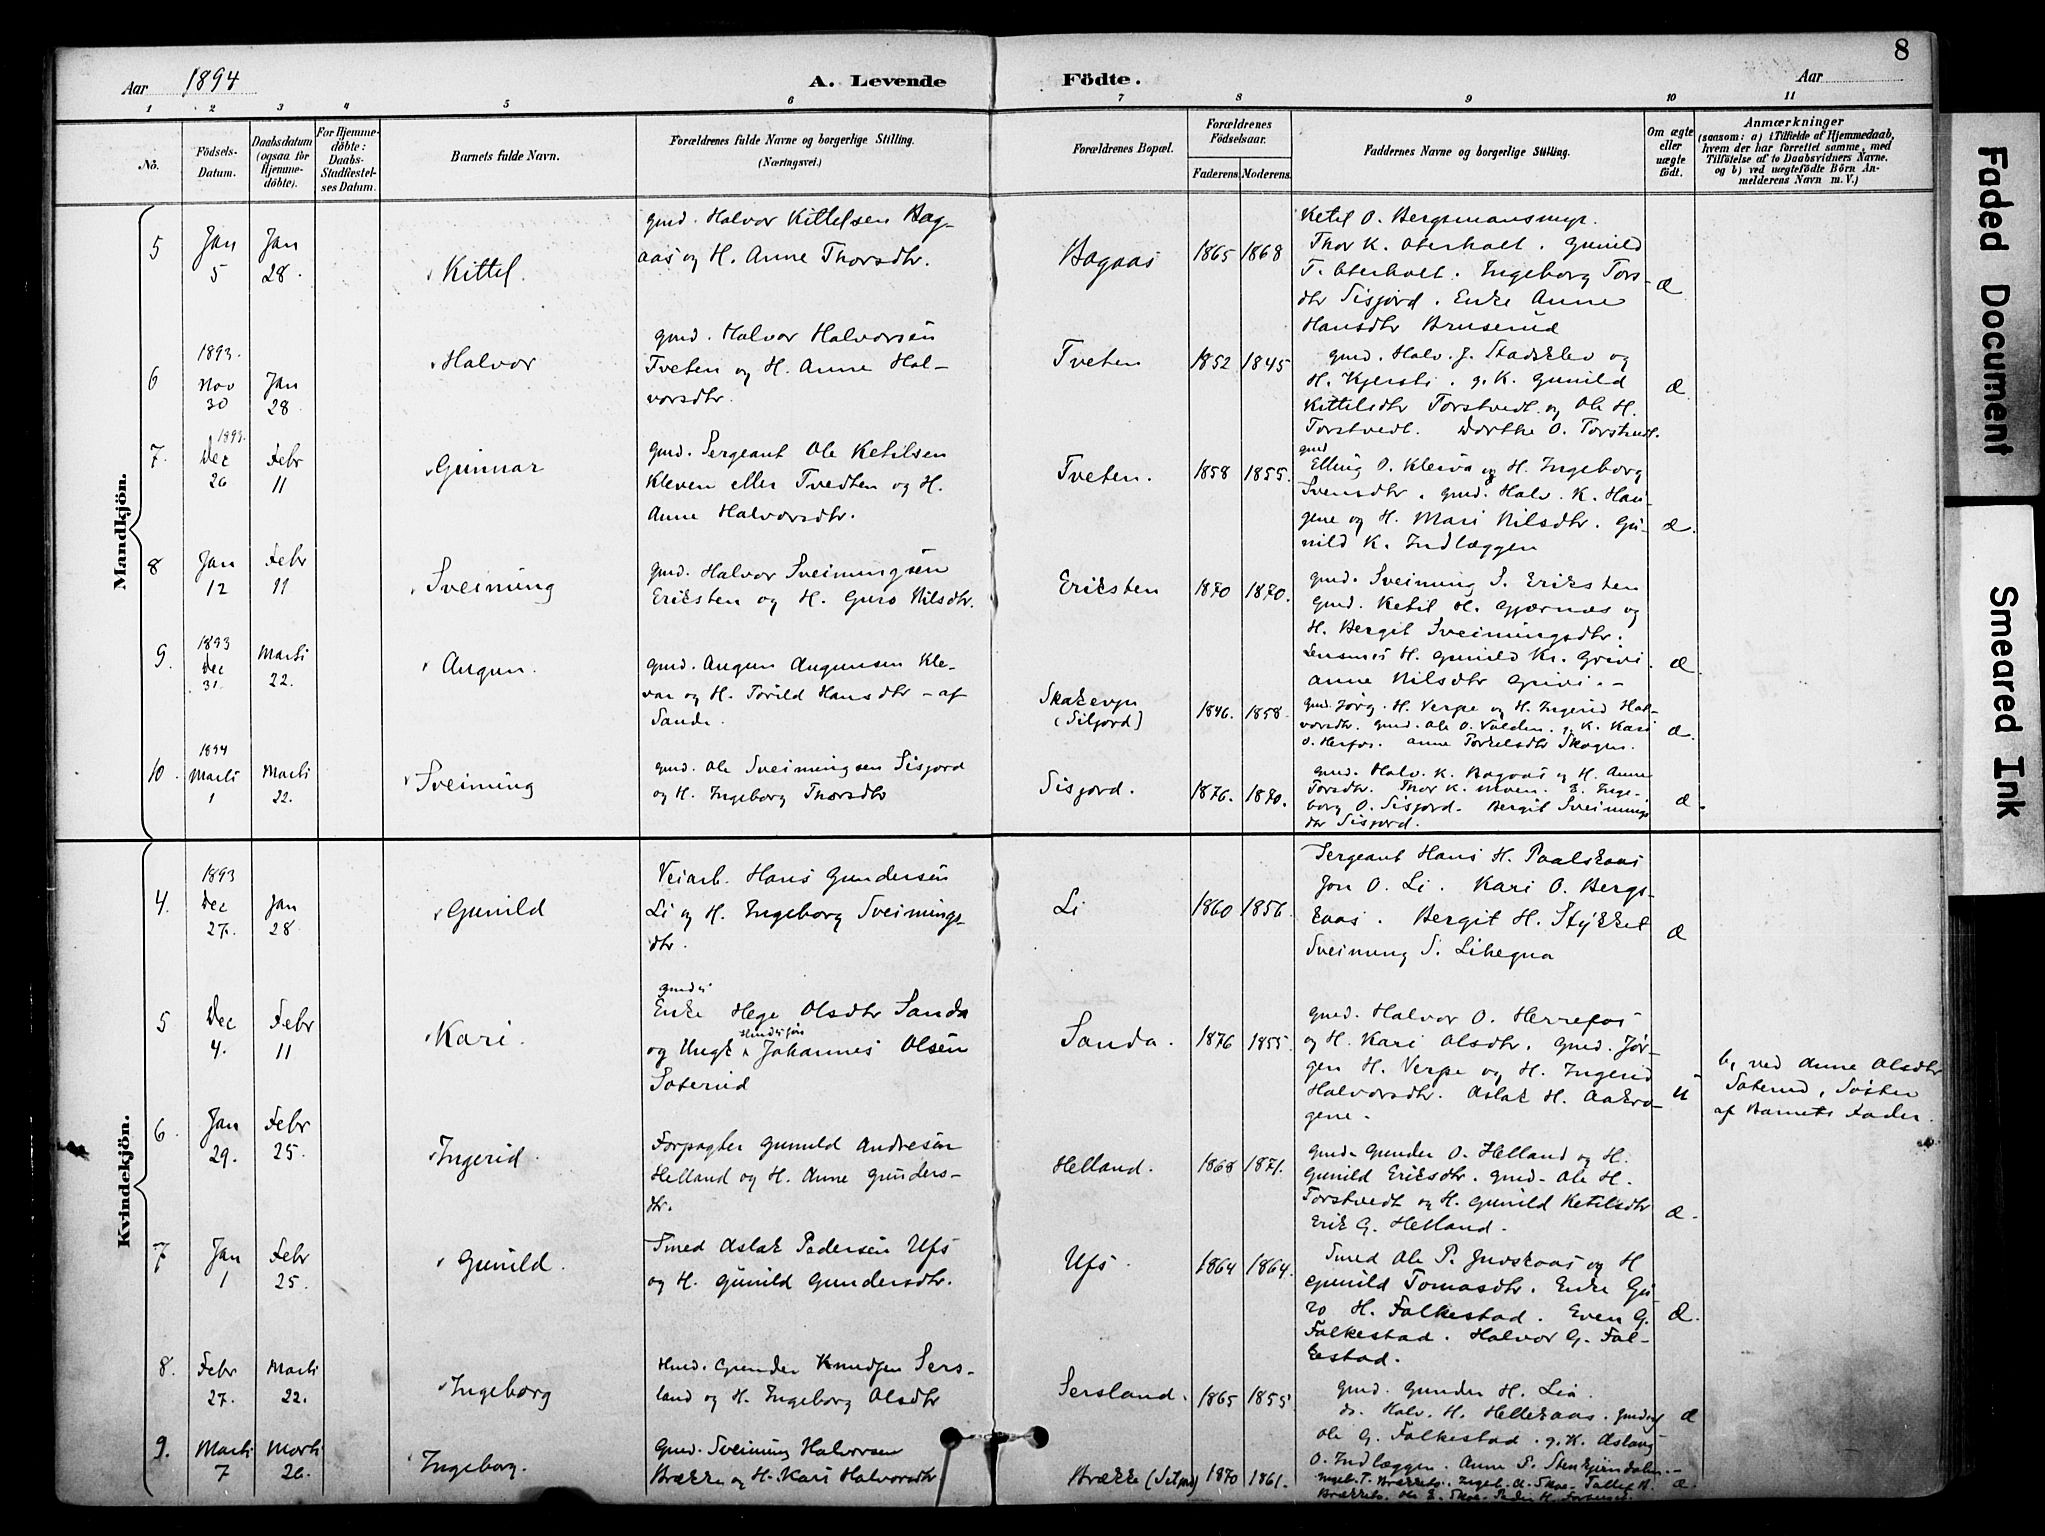 8
Aar 1894 A. Levende Födte. Aar
1 2 3 4 5 6 7 8 9 10 11
No.
Födsels-
Datum.
Daabsdatum
(ogsaa for
Hjemme-
döbte).
For Hjemme-
döbte:
Daabs-
Stadfæstel-
ses Datum.
Barnets fulde Navn.
Forældrenes fulde Navne og borgerlige Stilling.
(Næringsvei.)
Forældrenes Bopæl.
Forældrenes
Födselsaar.
Faderens. Moderens.
Faddernes Navne og borgerlige Stilling.
Om ægte
eller
uægte
født.
Anmærkninger
(saasom: a) i Tilfælde af Hjemmedaab,
hvem der har forrettet samme, med
Tilföielse af to Daabsvidners Navne.
og b) ved uægtefödte Börn An-
melderens Navn m. V.)
Mandkjön.
5
Jan
5
Jan
28.
Kittel.
gmd. Halvor Kittelsen Bag-
aas og H. Anne Thorsdtr.
Bagaas
1865 1868
Ketil O. Bergsmansmyr.
Thor K. Oterholt. Gunild
T. Oterholt. Ingeborg Tors-
dtr Sisjord. Enke Anne
Hansdtr Bruserud
Æ
6
1893.
Nov
30
Jan
28.
Halvor
gmd. Halvor Halvorsen
Tveten og H. Anne Hal-
vorsdtr.
Tveten
1852 1845
gmd. Halv. J. Stadsklev og
H. Kjersti. g. K. Gunild
Kittelsdtr Torstvedt og Ole H.
Torstvedt. Dorthe O. Torstvedt.
Æ
7.
1893.
Dec
26
Febr
11
Gunnar
gmd. Sergeant Ole Ketilsen
Kleven eller Tvedten og H.
Anne Halvorsdtr.
Tveten.
1858 1855.
gmd
Elling O. Kleiva og H. Ingeborg
Svensdtr. gmd. Halv. K. Hau-
gene og H. Mari Nilsdtr. Gu-
nild K. Indlæggen
Æ.
8
Jan
12
Febr
11
Sveinung
gmd. Halvor Sveinungsen
Eriksten og H. Guro Nilsdtr.
Eriksten
1870 1870.
gmd. Sveinung S. Eriksten
gmd. Ketil H. Gjærnes og
H. Bergit Sveinungsdtr.
H. Gunild Kr. Grivi.
Anne Nilsdtr Grivi.-
Æ
9.
1893
Dec
31.
Marti
22.
Augun.
gmd. Augun Augunsen Kle-
var og H. Torild Hansdtr - af
Sande.
(Siljord)
1846. 1858.
gmd. Jørg. H. Verpe og H. Ingerid Hal-
vorsdtr. gmd. Ole O. Valden. g. K. Kari
O. Herfos. Anne Torkelsdtr Skogen.
Æ.
10.
1894
Marti
1
Marti
22.
Sveinung
gmd. Ole Sveinungsen Sisjord
og H. Ingeborg Thorsdtr
Sisjord.
1876. 1870.
gmd. Halv. K. Bagaas og H. Anne
Torsdtr. Thor K. E. Inge-
borg O. Sisjord. Bergit Sveinungs
dtr Sisjord.
Æ.
Kvindekjön.
4.
1893
Dec
27.
Jan
28
Gunild
Veiarb. Hans Gundersen
Li og H. Ingeborg Sveinungs-
dtr.
Li
1860 1856.
Sergeant Hans H. Paalskaas
Jon O. Li. Kari O. Bergs-
kaas. Bergit H. Stykket
Sveinung S. Lihegna
Æ
5
Dec
4.
Febr
11
Kari.
gmds
Enke Hege Olsdtr Sanda
og Ungk. Johannes Olsen
Saterud
Sanda.
1876 1855.
gmd. Halvor O. Herrefos
og H. Kari Olsdtr. gmd. Jør-
gen H. Verpe og H. Ingerid
Halvorsdtr. Aslak H. Aakra-
gene.
U
b, ved Anne Olsdtr
Saterud, Søster
af Barnets Fader.
6.
Jan
29.
Febr
25.
Ingerid.
Forpagter Gunuld Andresen
Helland og H. Anne Gunders-
dtr.
Helland.
1868 1871.
gmd. Gunder O. Helland og H.
Gunild Eriksdtr. gmd. Ole H.
Torstvedt og H. Gunild Ketilsdtr
Erik G. Helland.
Æ.
7
Jan
1
Febr
25.
Gunild.
Smed Aslak Pedersen Ufs
og H. Gunild Gundersdtr.
Ufs.
1864 1864.
Smed Ole P. Juvskaas og H
Gunild Tomasdtr. Enke Gu-
ro H. Falkestad. Even G.
Falkestad. Halvor G. Fal-
kestad.
Æ.
8.
Febr
27.
Marti
22.
Ingeborg
Hmd. Gunder Knudsen Sers-
land og H. Ingeborg Olsdtr
Sersland.
1865 1855
gmd. Gunder H. Lia.
ds. Halv. H. Hellekaas.
Ole G. Falkestad. g. K. Aslaug
O. Indlæggen. Anne P. Stenstjerndalen.
Æ
9.
Marti
7
Marti
26.
Ingeborg.
Gmd. Sveinung Halvorsen
Brække og H. Kari Halvorsdtr.
Brække
1870 1861.
Æ.
Faded Document
Smeared Ink